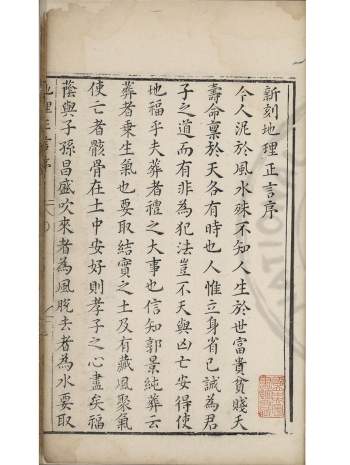 新刻地理正言序
今人泥於風水殊不知人生於世富貴貧賤夭
壽命稟於天各有時也人惟立身省己誠為君
子之道而有非為犯法豈不天與凶亡安得使
地福乎夫葬者禮之大事也信知郭景純葬云
葬者乘生氣也要取結實之土及有藏風聚氣
使亡者骸骨在土中安好則孝子之心盡矣福
蔭與子孫昌盛吹來者為風脫去者為水要取
地理正言序